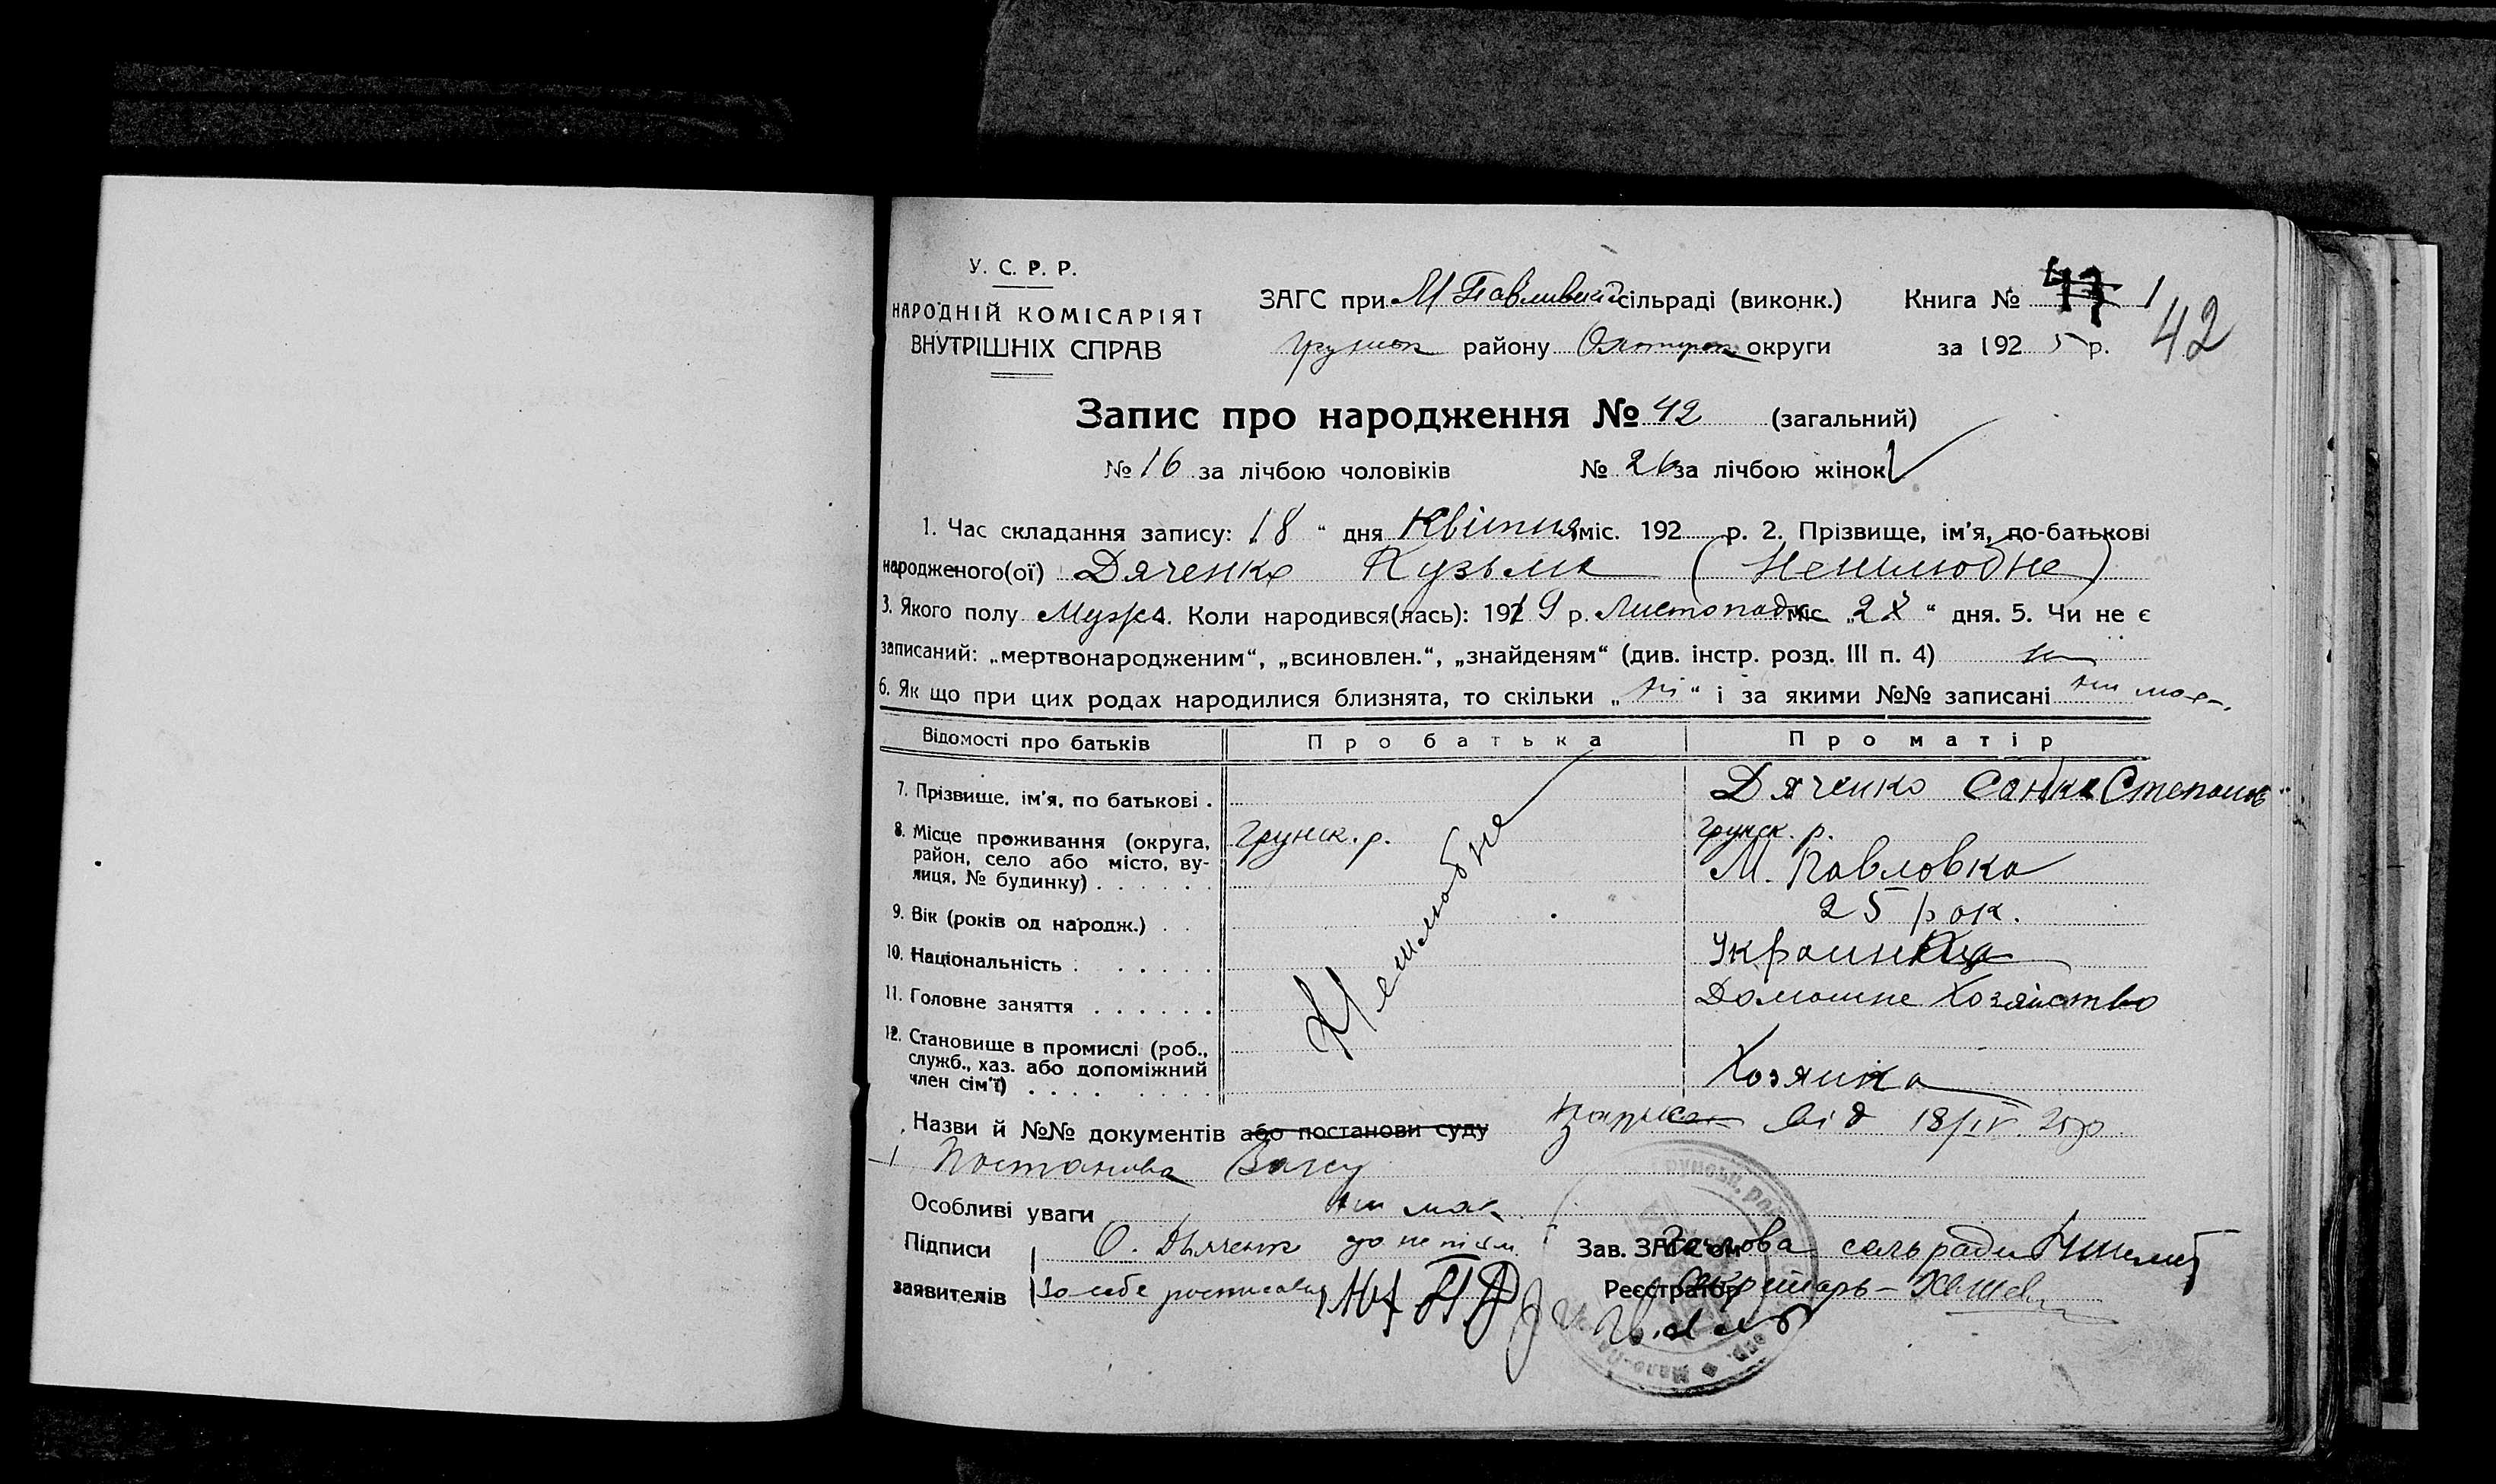 У. С. Р. Р.
НАРОДНІЙ КОМІСАРІЯТ
ВНУТРІШНІХ СПРАВ
ЗАГС при М Павлівській сільраді (виконк.)
Книга № 1
42
району округи
за 192 5 р.
Запис про народження № 42 (загальний)
№ 16 за лічбою чоловіків № 26 за лічбою жінок
1. Час складання запису: 18 “ дня Квітня міс. 192 р. 2. Прізвище, ім'я, по-батькові
народженого(ої) Дяченко Кузьма
3. Якого полу Муж. 4. Коли народився(лась): 1919 р. Листопада міс. „ “ дня. 5. Чи не є
записаний: „мертвонародженим“, „всиновлен.“, „знайденям“ (див. інстр. розд. III п. 4)
6. Як що при цих родах народилися близнята, то скільки „ ні “ і за якими №№ записані
Відомості про батьків Про батька Про матір
7. Прізвище, ім'я, по батькові . Дяченко Степанов
8. Місце проживання (округа, район, село або місто, вулиця, № будинку) . . . . . . Грунск. р. Грунск. р.
М. Павловка
9. Вік (років од народж.) . . 25 рок.
10. Національність . . . . . . Украинка
11. Головне заняття . . . . . . Домашне Хозяйство
12. Становище в промислі (роб., служб., хаз. або допоміжний член сім'ї) . . . . . . . . Хозяика
Назви й №№ документів або постанови суду від 18/IV. 25 р
1 Постанова Загсу
Особливі уваги
Підписи
заявителів
О. Дяченко
За себе
Зав. ЗАГС'ом Голова сельради
Реєстратор Секретарь –